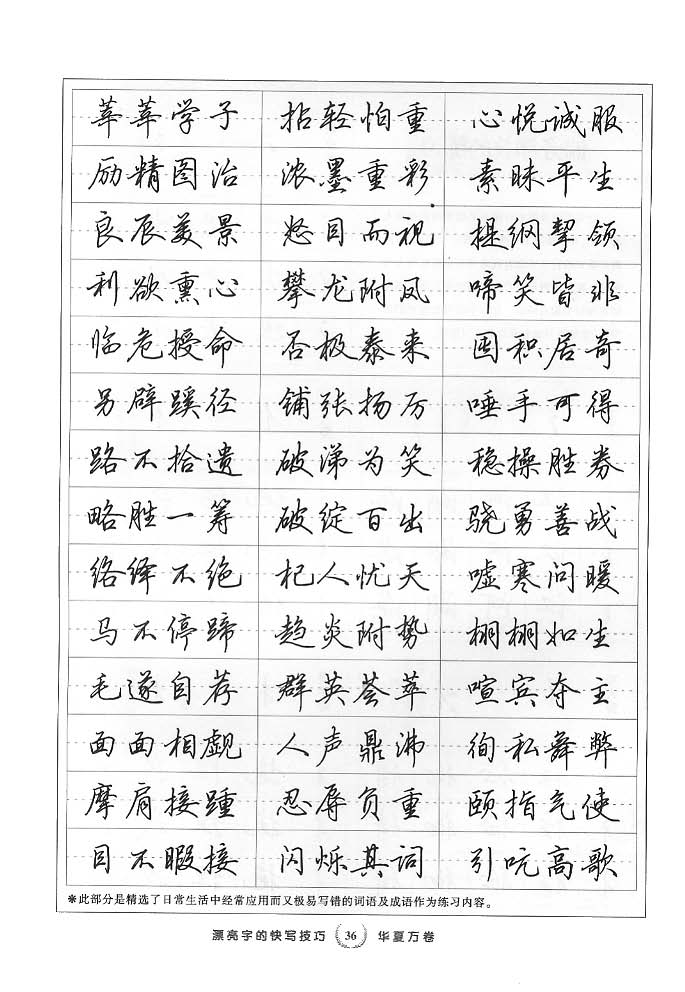 莘莘学子 拈轻怕重 心悦诚服
励精图治 浓墨重彩 素昧平生
良辰美景 怒目而视 提纲挈领
利欲熏心 攀龙附凤 啼笑皆非
临危授命 否极泰来 囤积居奇
另辟蹊径 铺张扬厉 唾手可得
路不拾遗 破涕为笑 稳操胜券
略胜一筹 破绽百出 骁勇善战
络绎不绝 杞人忧天 嘘寒问暖
马不停蹄 趋炎附势 栩栩如生
毛遂自荐 群英荟萃 喧宾夺主
面面相觑 人声鼎沸 徇私舞弊
摩肩接踵 忍辱负重 颐指气使
目不暇接 闪烁其词 引吭高歌
※此部分是精选了日常生活中经常应用而又极易写错的词语及成语作为练习内容。
漂亮字的快写技巧 36 华夏万卷